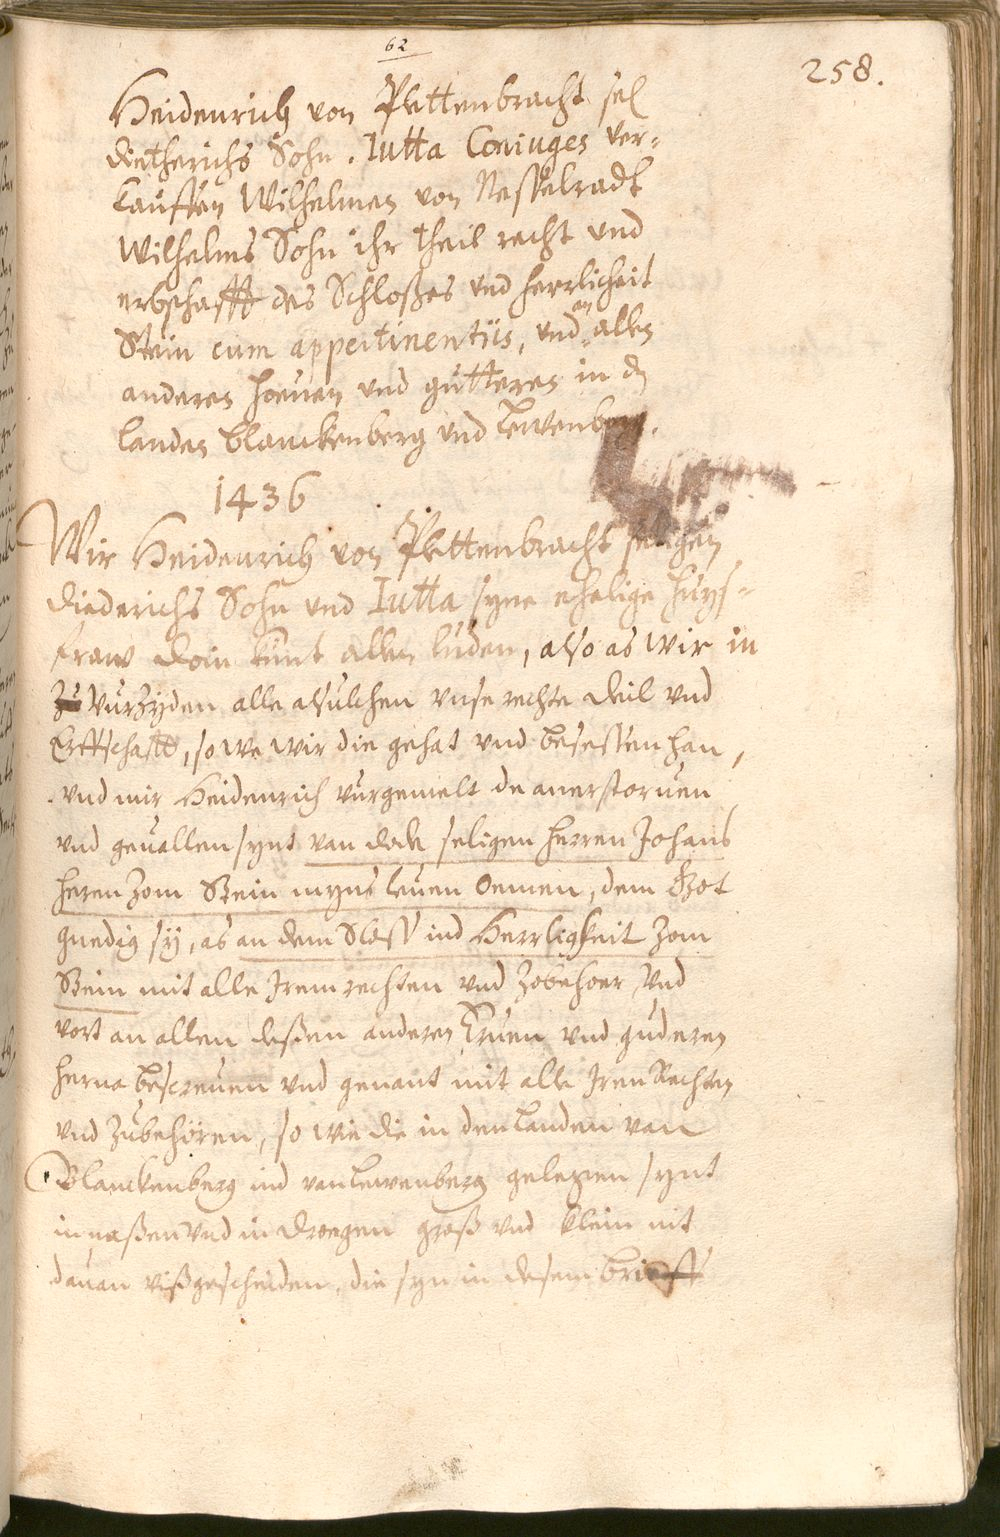 62
258.
Heidenrich von Plettenbracht sel
dietherichs Sohn. Iutta Coniuges ver-
kauffen Wilhelmen von Nesselradt
Wilhelms Sohn ihr theil recht und
erbschafft des Schloßes und herrlicheit
Stein cum appertinentiis, und an allen
anderen hoeuen und gütteren in den
landen blanckenberg und Lewenberg.
1436
Wir Heidenrich von Plettenbracht seligen
diederichs Sohn und Iutta syne ehelige huys-
fraw doin kunt allen luden, also as wir in
vurzyden alle alsulchen unse rechte deil und
Erffschafft, so we wir die gehat und besessen han,
und mir Heidenrich vurgemelt de anerstoruen
und geuallen synt van dode seligen herren Johans
heren zom Stein myns leuen Oemen, dem Got
gnedig sÿ, as an dem Sloss ind Herrligkeit zom
Stein mit alle Irem rechten und zobehoer, und
vort an allen deßen anderen Eruen und guderen
herna bescreuen und genant mit alle Iren Rechten
und zubehören, so wie die in den landen van
Blanckenberg ind van lewenberg gelegen synt
in naßen und in droegen groß und klein nit
dauan ußgescheiden, die syn in desem brieff